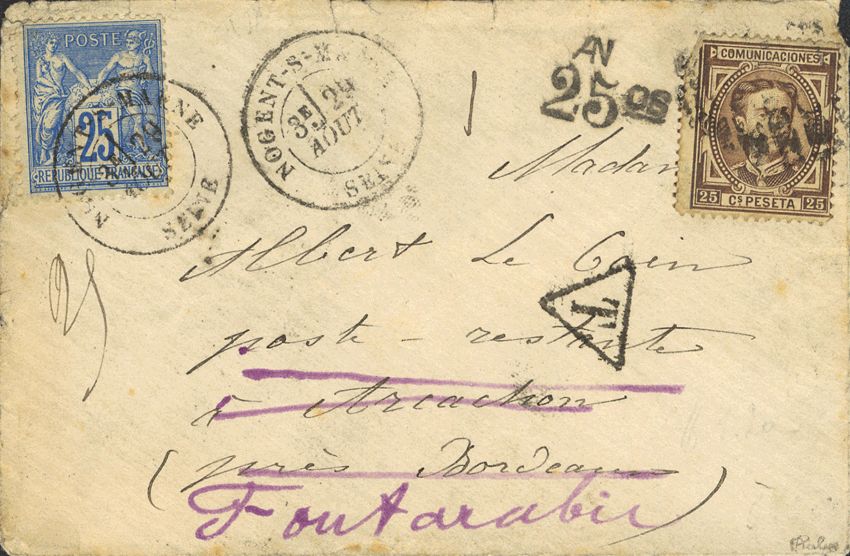 POSTE
25
REPUBLIQUE FRANÇAISE
MARNE
29
SEINE
NOGENT-S-MARNE
3E 29
AOUT
SEINE
AN
25 CS
COMUNICACIONES
25 CS PESETA 25
Madame
Albert Le Coin
poste-restante
à Arcachon
(près Bordeaux)
Fontarabie
T
25